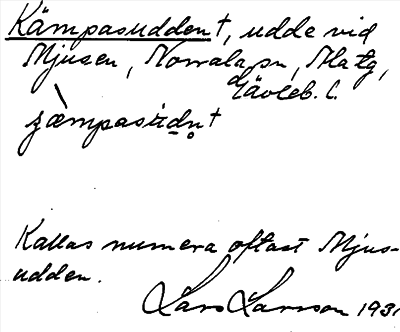 Kämpasudden†, udde vid
Mjusen, Norrala sn, Matg,
Gävleb. l.
Kallas numera oftast Mjus-
udden.
Lars Larsson 1931